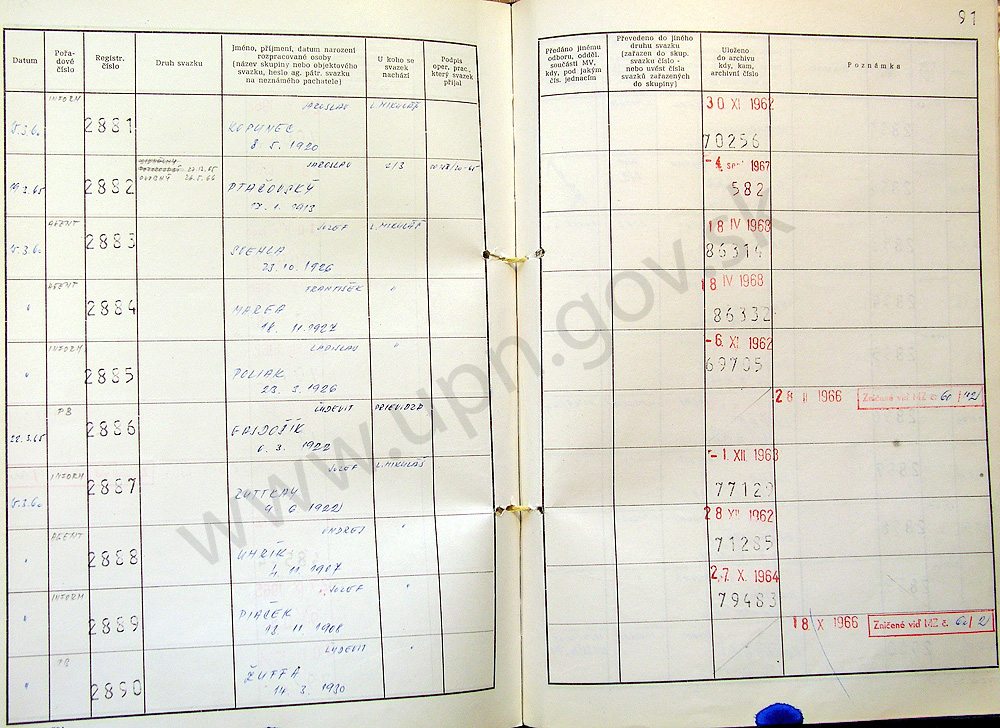 91
Datum
Pořa-
dové
číslo
Registr.
číslo
Druh svazku
Jméno, příjmení, datum narození
rozpracované osoby
(název skupiny nebo objektového
svazku, heslo ag. pátr. svazku
na neznámého pachatele)
U koho se
svazek
nachází
Podpis
oper. prac.,
který svazek
přijal
Předáno jinému
odboru, odděl.
součásti MV,
kdy, pod jakým
čís. jednacím
Převedeno do jiného
druhu svazku
(zařazen do skup.
svazku číslo -
nebo uvést čísla
svazků zařazených
do skupiny)
Uloženo
do archivu
kdy, kam,
archivní číslo
Poznámka
INFORM
JAROSLAV
L. MIKULÁŠ
2881
KOPUNEC
8. 5. 1920
30 XI 1962
70256
JAROSLAV
2/3
19.3.65
2882
PTAČOVSKÝ
17. 1. 1913
-4. 1967
582
AGENT
JOZEF
L. MIKULÁŠ
2883
23. 10. 1926
18 IV 1968
86314
AGENT
FRANTIŠEK
"
"
2884
18. 11. 1927
18 IV 1968
86332
INFORM
LADISLAV
"
"
2885
POLIAK
23. 3. 1926
-6. XI. 1962
69705
PB
ĽUDEVIT
PRIEVIDZA
22.3.65
2886
GAJDOŠÍK
6. 3. 1922
28 II 1966
Zničené viď MZ č. 60/
INFORM
JOZEF
L. MIKULÁŠ
2887
ŽUTTKAY
9. 6. 1922
-1. XII. 1963
77129
AGENT
ONDREJ
"
"
2888
UHRÍK
4. 11. 1907
28 XII 1962
71285
INFORM
JOZEF
"
"
2889
PIAČEK
13. 11. 1908
27. X. 1964
79483
PB
ĽUDEVIT
"
"
2890
ŽUFFA
14. 3. 1930
18 X 1966
Zničené viď MZ č. 60/2
www.upn.gov.sk